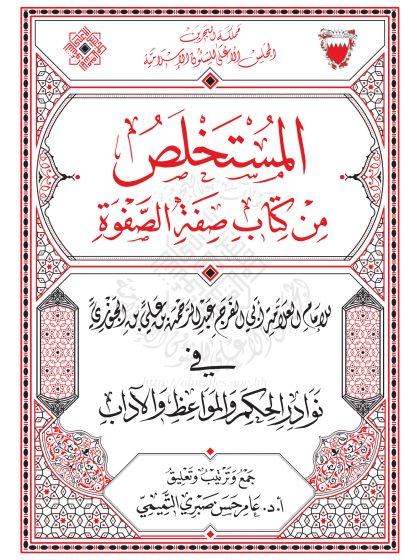 مملكة البحرين
المجلس الأعلى للشئون الإسلامية
المُسْتَخْلَصُ
مِنْ كِتَابِ صِفَةِ الصَّفْوَةِ
للإمام العلامة أبي الفرج عبد الرحمن بن علي بن الجوزي
في
نَوَادِرِ الحِكَمِ وَالمَوَاعِظِ وَالآدَابِ
جَمْعُ وَتَرْتِيبُ وَتَعْلِيقُ
أ.د. عَامِر حَسَن صَبْرِي التَّمِيمِيّ